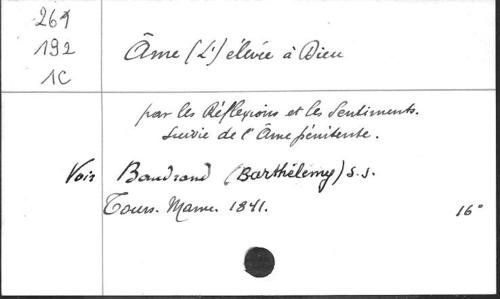 269
192
1C
Âme (L') élevée à Dieu
par les Réflexions et les Sentiments.
Suivie de l'Âme pénitente.
Voir Baudrand (Barthélemy) S.J.
Tours. Mame. 1841. 16°